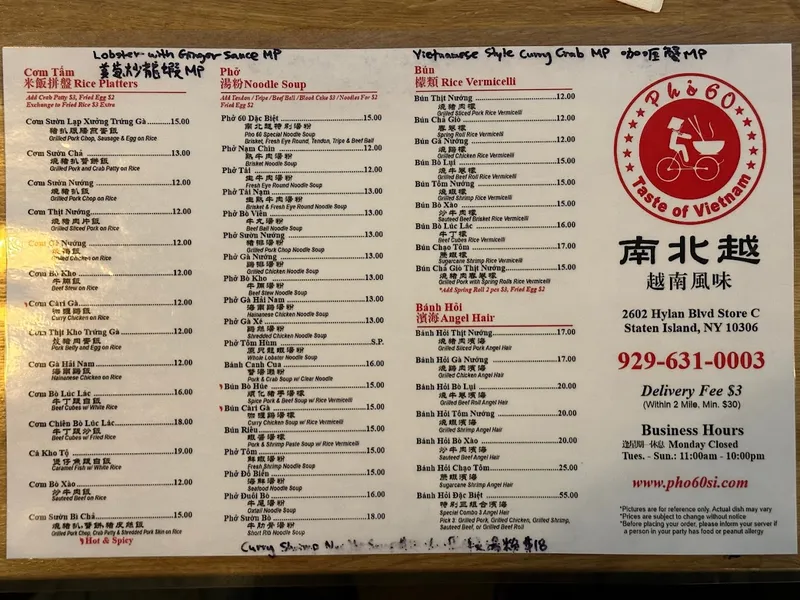 Lobster with Ginger Sauce MP
薑葱炒龍蝦 MP
Vietnamese Style Curry Crab MP 咖喱蟹 MP
Cơm Tấm
米飯拼盤 Rice Platters
Add Crab Patty $3, Fried Egg $2
Exchange to Fried Rice $3 Extra
Cơm Sườn Lạp Xưởng Trứng Gà 15.00
Grilled Pork Chop, Sausage & Egg on Rice
Cơm Sườn Chả 13.00
Grilled Pork and Crab Patty on Rice
Cơm Sườn Nướng 12.00
燒豬扒飯
Grilled Pork Chop on Rice
Cơm Thịt Nướng 12.00
燒豬肉片飯
Grilled Sliced Pork on Rice
Cơm Gà Nướng 12.00
Grilled Chicken on Rice
Cơm Bò Kho 12.00
牛腩飯
Beef Stew on Rice
Cơm Càri Gà 12.00
咖喱雞飯
Curry Chicken on Rice
Cơm Thịt Kho Trứng Gà 12.00
Pork Belly and Egg on Rice
Cơm Gà Hải Nam 12.00
海南雞飯
Hainanese Chicken on Rice
Cơm Bò Lúc Lắc 16.00
牛丁跟白飯
Beef Cubes w/ White Rice
Cơm Chiên Bò Lúc Lắc 18.00
牛丁跟炒飯
Beef Cubes w/ Fried Rice
Cá Kho Tộ 19.00
煲仔魚跟白飯
Caramel Fish w/ White Rice
Cơm Bò Xào 12.00
炒牛肉飯
Sauteed Beef on Rice
Cơm Sườn Bì Chả 15.00
Grilled Pork Chop, Crab Patty & Shredded Pork Skin on Rice
Hot & Spicy
Phở
湯粉 Noodle Soup
Add Tendon / Tripe / Beef Ball / Blood Cake $3 / Noodles For $2
Fried Egg $2
Phở 60 Đặc Biệt 15.00
南北越特別湯粉
Pho 60 Special Noodle Soup
Brisket, Fresh Eye Round, Tendon, Tripe & Beef Ball
Phở Nạm Chín 12.00
熟牛肉湯粉
Brisket Noodle Soup
Phở Tái 12.00
生牛肉湯粉
Fresh Eye Round Noodle Soup
Phở Tái Nạm 13.00
生熟牛肉湯粉
Brisket & Fresh Eye Round Noodle Soup
Phở Bò Viên 13.00
牛丸湯粉
Beef Ball Noodle Soup
Phở Sườn Nướng 13.00
豬排湯粉
Grilled Pork Chop Noodle Soup
Phở Gà Nướng 13.00
雞排湯粉
Grilled Chicken Noodle Soup
Phở Bò Kho 13.00
牛腩湯粉
Beef Stew Noodle Soup
Phở Gà Hải Nam 13.00
海南雞湯粉
Hainanese Chicken Noodle Soup
Phở Gà Xé 13.00
雞絲湯粉
Shredded Chicken Noodle Soup
Phở Tôm Hùm S.P.
原只龍蝦湯粉
Whole Lobster Noodle Soup
Bánh Canh Cua 16.00
Pork & Crab Soup w/ Clear Noodle
Bún Bò Húe 15.00
順化豬手湯檬
Spice Pork & Beef Soup w/ Rice Vermicelli
Bún Càri Gà 15.00
咖喱雞湯檬
Curry Chicken Soup w/ Rice Vermicelli
Bún Riêu 15.00
Pork & Shrimp Paste Soup w/ Rice Vermicelli
Phở Tôm 15.00
鮮蝦湯粉
Fresh Shrimp Noodle Soup
Phở Đồ Biển 15.00
海鮮湯粉
Seafood Noodle Soup
Phở Đuôi Bò 16.00
牛尾湯粉
Oxtail Noodle Soup
Phở Sườn Bò 18.00
牛肋骨湯粉
Short Rib Noodle Soup
Bún
檬類 Rice Vermicelli
Bún Thịt Nướng 12.00
燒豬肉檬
Grilled Sliced Pork Rice Vermicelli
Bún Chả Giò 12.00
春卷檬
Spring Roll Rice Vermicelli
Bún Gà Nướng 12.00
燒雞檬
Grilled Chicken Rice Vermicelli
Bún Bò Lụi 15.00
燒牛卷檬
Grilled Beef Roll Rice Vermicelli
Bún Tôm Nướng 15.00
燒蝦檬
Grilled Shrimp Rice Vermicelli
Bún Bò Xào 15.00
炒牛肉檬
Sauteed Beef Brisket Rice Vermicelli
Bún Bò Lúc Lắc 16.00
牛丁檬
Beef Cubes Rice Vermicelli
Bún Chạo Tôm 17.00
蔗蝦檬
Sugarcane Shrimp Rice Vermicelli
Bún Chả Giò Thịt Nướng 15.00
燒豬肉春卷檬
Grilled Pork with Spring Rolls Rice Vermicelli
*Add Spring Roll 2 pcs $3, Fried Egg $2
Bánh Hỏi
濱海 Angel Hair
Bánh Hỏi Thịt Nướng 17.00
燒豬肉濱海
Grilled Sliced Pork Angel Hair
Bánh Hỏi Gà Nướng 17.00
燒雞肉濱海
Grilled Chicken Angel Hair
Bánh Hỏi Bò Lụi 20.00
燒牛卷濱海
Grilled Beef Roll Angel Hair
Bánh Hỏi Tôm Nướng 20.00
燒蝦濱海
Grilled Shrimp Angel Hair
Bánh Hỏi Bò Xào 20.00
炒牛肉濱海
Sauteed Beef Angel Hair
Bánh Hỏi Chạo Tôm 25.00
蔗蝦濱海
Sugarcane Shrimp Angel Hair
Bánh Hỏi Đặc Biệt 55.00
特別三組合濱海
Special Combo 3 Angel Hair
Pick 3: Grilled Pork, Grilled Chicken, Grilled Shrimp,
Sauteed Beef, or Grilled Beef Roll
Phở 60
Taste of Vietnam
南北越
越南風味
2602 Hylan Blvd Store C
Staten Island, NY 10306
929-631-0003
Delivery Fee $3
(Within 2 Mile, Min. $30)
Business Hours
逢星期一休息 Monday Closed
Tues. - Sun.: 11:00am - 10:00pm
www.pho60si.com
*Pictures are for reference only. Actual dish may vary
*Prices are subject to change without notice
*Before placing your order, please inform your server if
a person in your party has food or peanut allergy
Curry Shrimp $18